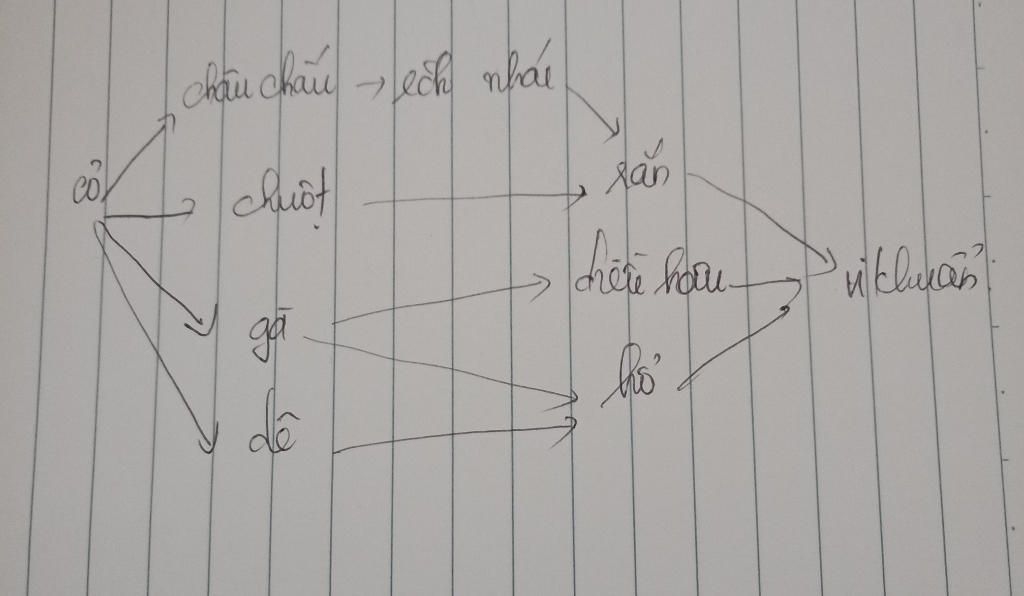 châu chấu → ếch nhái
cỏ
chuột
rắn
gà
diều hâu
vi khuẩn
hổ
dê